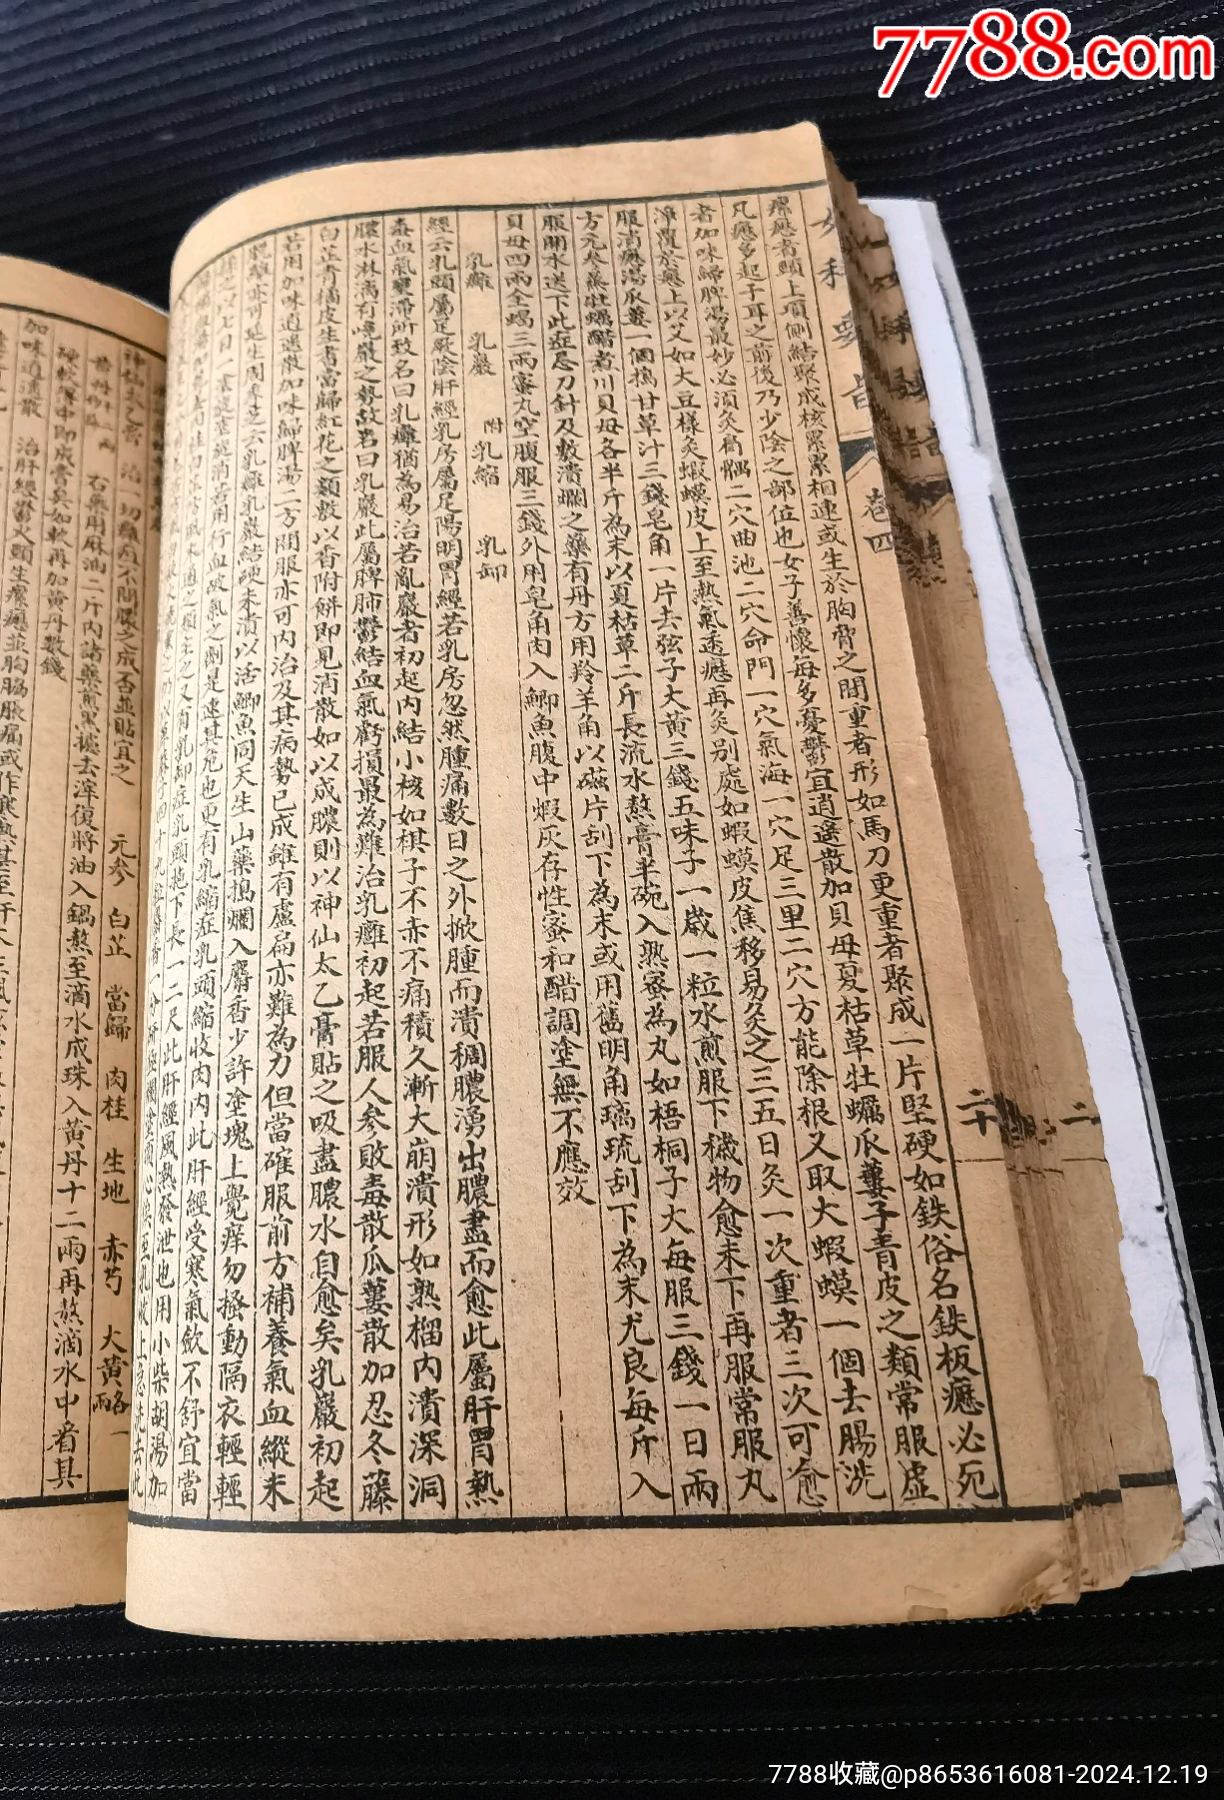 7788.com
女科要旨
卷四
二十
瘰癧者頸上項側結聚成核累累相連或生於胸脅之間重者形如馬刀更重者聚成一片堅硬如鉄俗名鉄板癧必死
凡癧多起于耳之前後乃少陰之部位也女子善懷每多憂鬱宜逍遙散加貝母夏枯草牡蠣瓜蔞子青皮之類常服虛
者加味歸脾湯最妙必須灸肩髃二穴曲池二穴命門一穴氣海一穴足三里二穴方能除根又取大蝦蟆一個去腸洗
淨覆於癧上以艾如大豆樣灸蝦蟆皮上至熱氣透癧再灸別處如蝦蟆皮焦移易灸之三五日灸一次重者三次可愈
服消癧湯瓜蔞一個搗甘草汁三錢皂角一片去弦子大黃三錢五味子一歲一粒水煎服下穢物愈未下再服常服丸
方元參蒸牡蠣醋煮川貝母各半斤為末以夏枯草二斤長流水熬膏半碗入熟蜜為丸如梧桐子大每服三錢一日兩
服開水送下此症忌刀針及敷潰爛之藥有丹方用羚羊角以磁片刮下為末或用舊明角璃琉刮下為末尤良每斤入
貝母四兩全蝎三兩蜜丸空腹服三錢外用皂角肉入鯽魚腹中煆灰存性蜜和醋調塗無不應效
乳癰 乳巖 附乳縮 乳卸
經云乳頭屬足厥陰肝經乳房屬足陽明胃經若乳房忽然腫痛數日之外掀腫而潰稠膿湧出膿盡而愈此屬肝胃熱
毒血氣壅滯所致名曰乳癰猶為易治若亂巖者初起內結小核如棋子不赤不痛積久漸大崩潰形如熟榴內潰深洞
膿水淋漓有巉巖之勢故名曰乳巖此屬脾肺鬱結血氣虧損最為難治乳癰初起若服人參敗毒散瓜蔞散加忍冬藤
白芷青橘皮生耆當歸紅花之類敷以香附餅即見消散如以成膿則以神仙太乙膏貼之吸盡膿水自愈矣乳巖初起
若用加味逍遙散加味歸脾湯二方間服亦可內治及其病勢已成雖有盧扁亦難為力但當確服前方補養氣血縱未
脫離亦可延生周季芝云乳癰乳巖結硬未潰以活鯽魚同天生山藥搗爛入麝香少許塗塊上覺痒勿搔動隔衣輕輕
之又有乳卸症乳頭拖下長一二尺此肝經風熱發泄也用小柴胡湯加
神仙太乙膏 治一切癰疽不問膿之成否並貼宜之
元參 白芷 當歸 肉桂 生地 赤芍 大黃各一兩
右藥用麻油二斤內諸藥煎黑濾去滓復將油入鍋熬至滴水成珠入黃丹十二兩再熬滴水中看其
硬軟得中即成膏矣如軟再加黃丹數錢
加味逍遙散 治肝經鬱火頸生瘰癧並胸脇脹痛或作寒熱甚至
7788收藏@p8653616081-2024.12.19